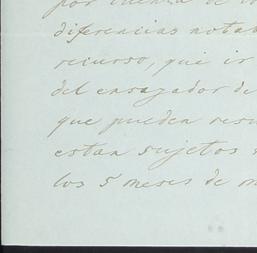 por cuenta de
diferencias notab
recurso, que ir
del ensayador de
que pueden resu
estan sujetos
los 5 meses de m